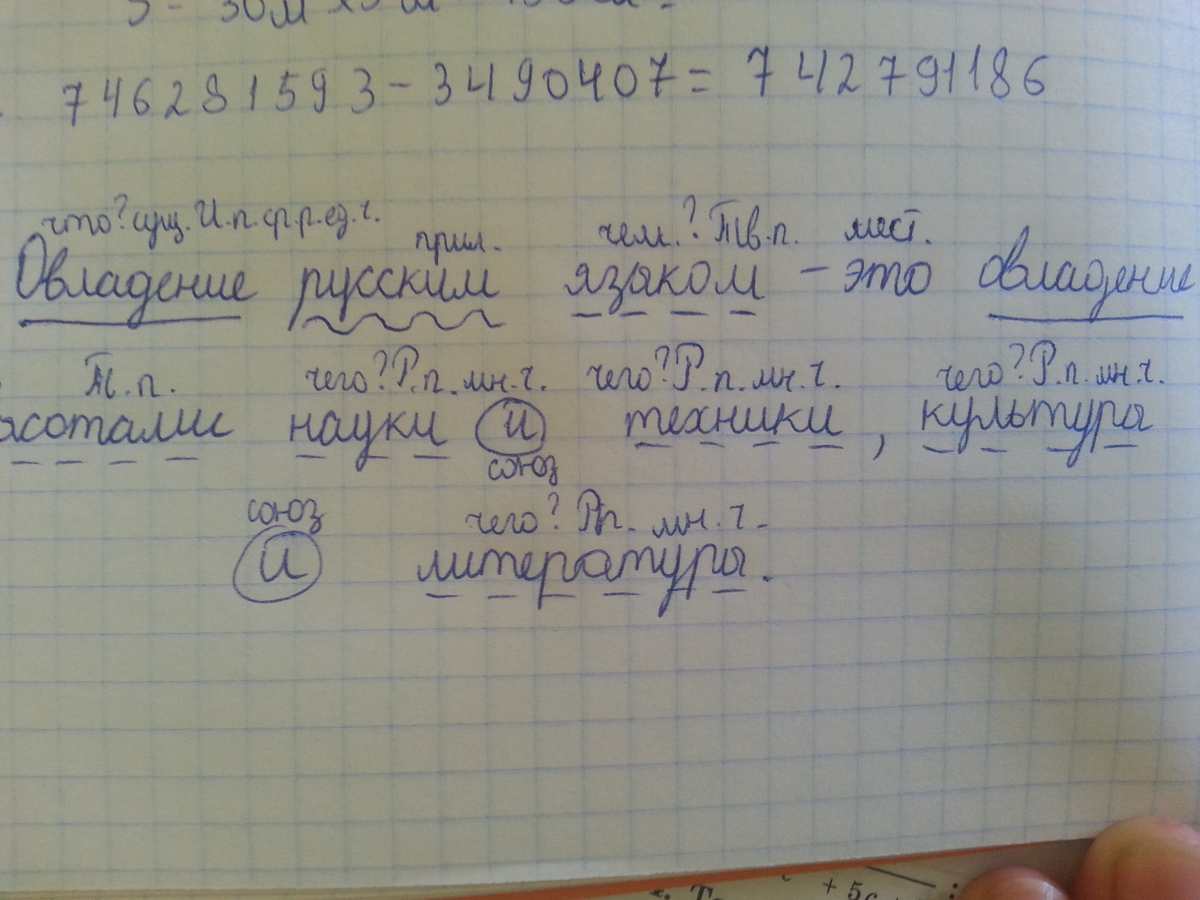 746281593 - 3490407 = 742791186
что? сущ. И.п. ср.р. ед.ч. прил. чем? Тв.п. мест.
Овладение русским языком - это овладение
Т.п. чего? Р.п. мн.ч. чего? Р.п. мн.ч. чего? Р.п. мн.ч.
науки и техники, культуры
союз
союз чего? Рп. мн.ч.
и литературы.
+ 5